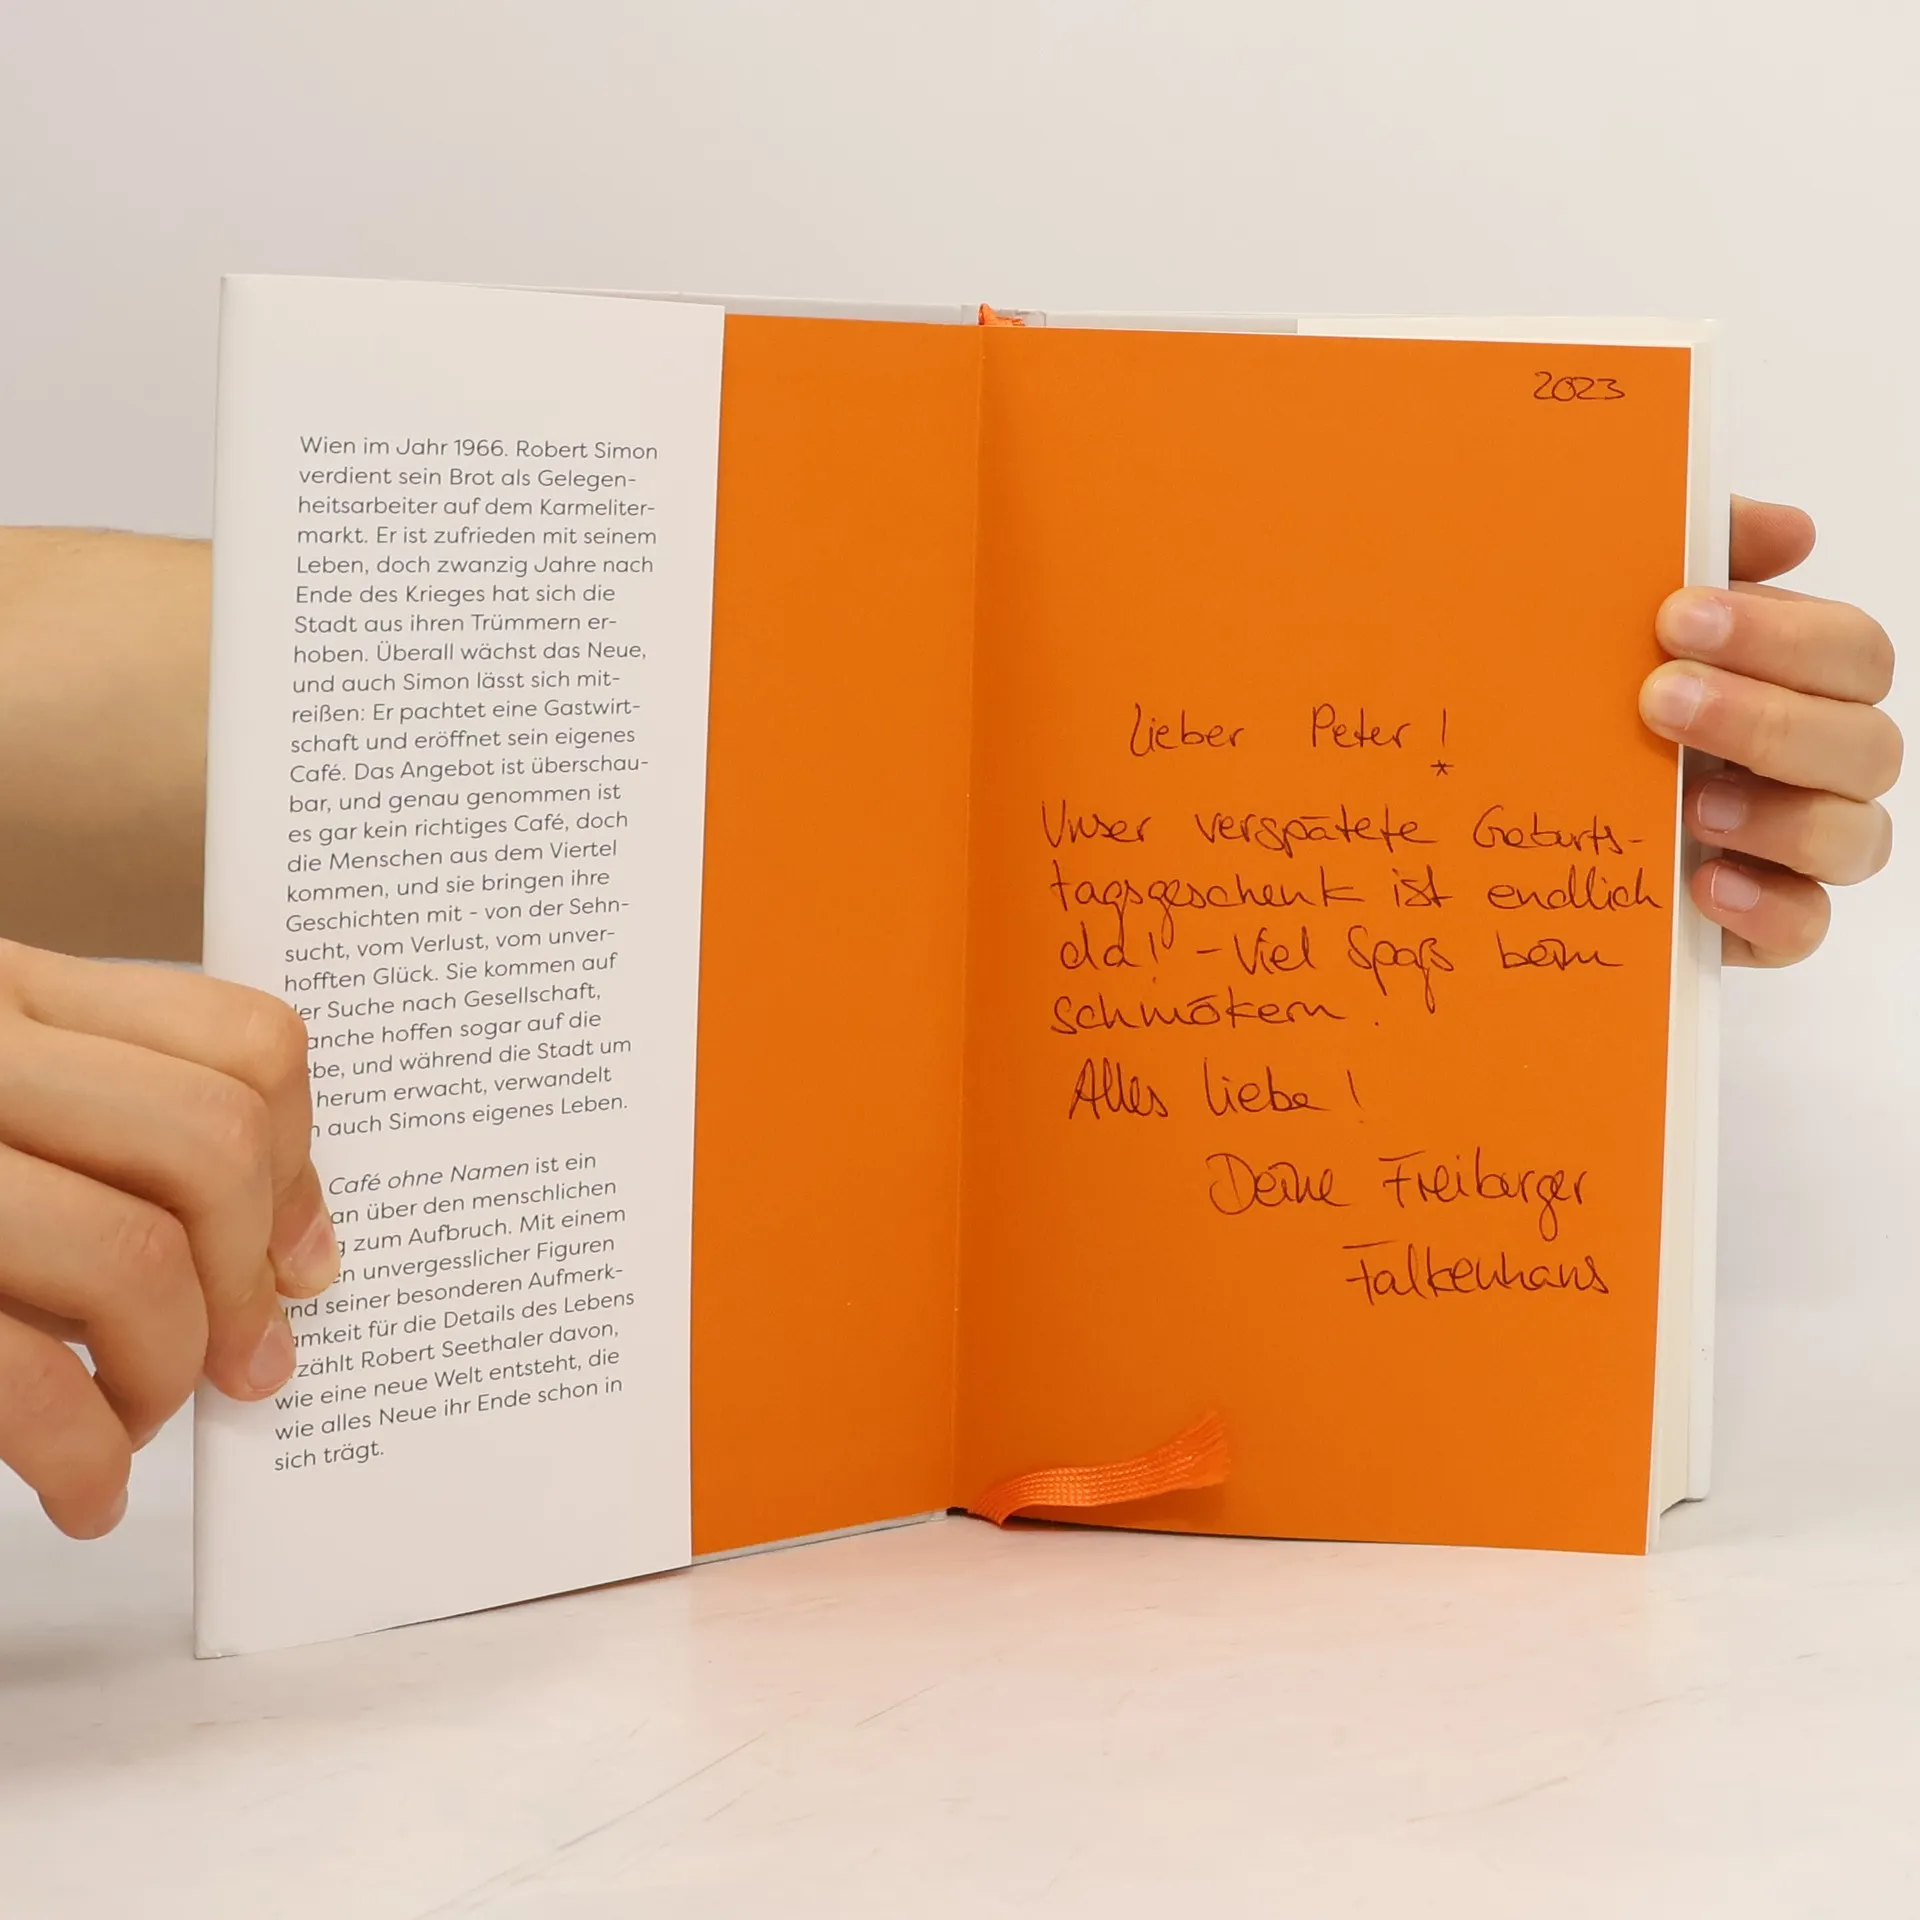 Wien im Jahr 1966. Robert Simon
verdient sein Brot als Gelegen-
heitsarbeiter auf dem Karmeliter-
markt. Er ist zufrieden mit seinem
Leben, doch zwanzig Jahre nach
Ende des Krieges hat sich die
Stadt aus ihren Trümmern er-
hoben. Überall wächst das Neue,
und auch Simon lässt sich mit-
reißen: Er pachtet eine Gastwirt-
schaft und eröffnet sein eigenes
Café. Das Angebot ist überschau-
bar, und genau genommen ist
es gar kein richtiges Café, doch
die Menschen aus dem Viertel
kommen, und sie bringen ihre
Geschichten mit - von der Sehn-
sucht, vom Verlust, vom unver-
hofften Glück. Sie kommen auf
er Suche nach Gesellschaft,
anche hoffen sogar auf die
be, und während die Stadt um
herum erwacht, verwandelt
h auch Simons eigenes Leben.
Café ohne Namen ist ein
an über den menschlichen
g zum Aufbruch. Mit einem
en unvergesslicher Figuren
und seiner besonderen Aufmerk-
amkeit für die Details des Lebens
zählt Robert Seethaler davon,
wie eine neue Welt entsteht, die
wie alles Neue ihr Ende schon in
sich trägt.
2023
Lieber Peter!
*
Unser verspätete Geburts-
tagsgeschenk ist endlich
da! - Viel Spaß beim
Schmökern.
Alles Liebe!
Deine Freiburger
Falkenhans